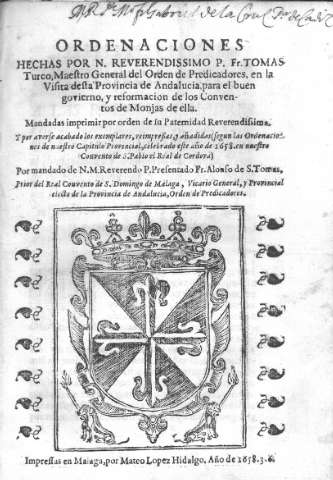 A R. Me. Pe. Gabriel de la Cruz, Pr. de Cadiz
ORDENACIONES
HECHAS POR N. REVERENDISSIMO P. Fr. TOMAS
Turco, Maestro General del Orden de Predicadores, en la
Visita desta Provincia de Andalucia, para el buen
govierno, y reformacion de los Conven-
tos de Monjas de ella.
Mandadas imprimir por orden de su Paternidad Reverendissima.
Y por averse acabado los exemplares, reimpressas, y añadidas (segun las Ordenacio-
nes de nuestro Capitulo Provincial, celebrado este año de 1658. en nuestro
Convento de S. Pablo el Real de Cordova)
Por mandado de N. M. Reverendo P. Presentado Fr. Alonso de S. Tomas,
Prior del Real Convento de S. Domingo de Malaga, Vicario General, y Provincial
electo de la Provincia de Andalucia, Orden de Predicadores.
Impressas en Malaga, por Mateo Lopez Hidalgo, Año de 1658.